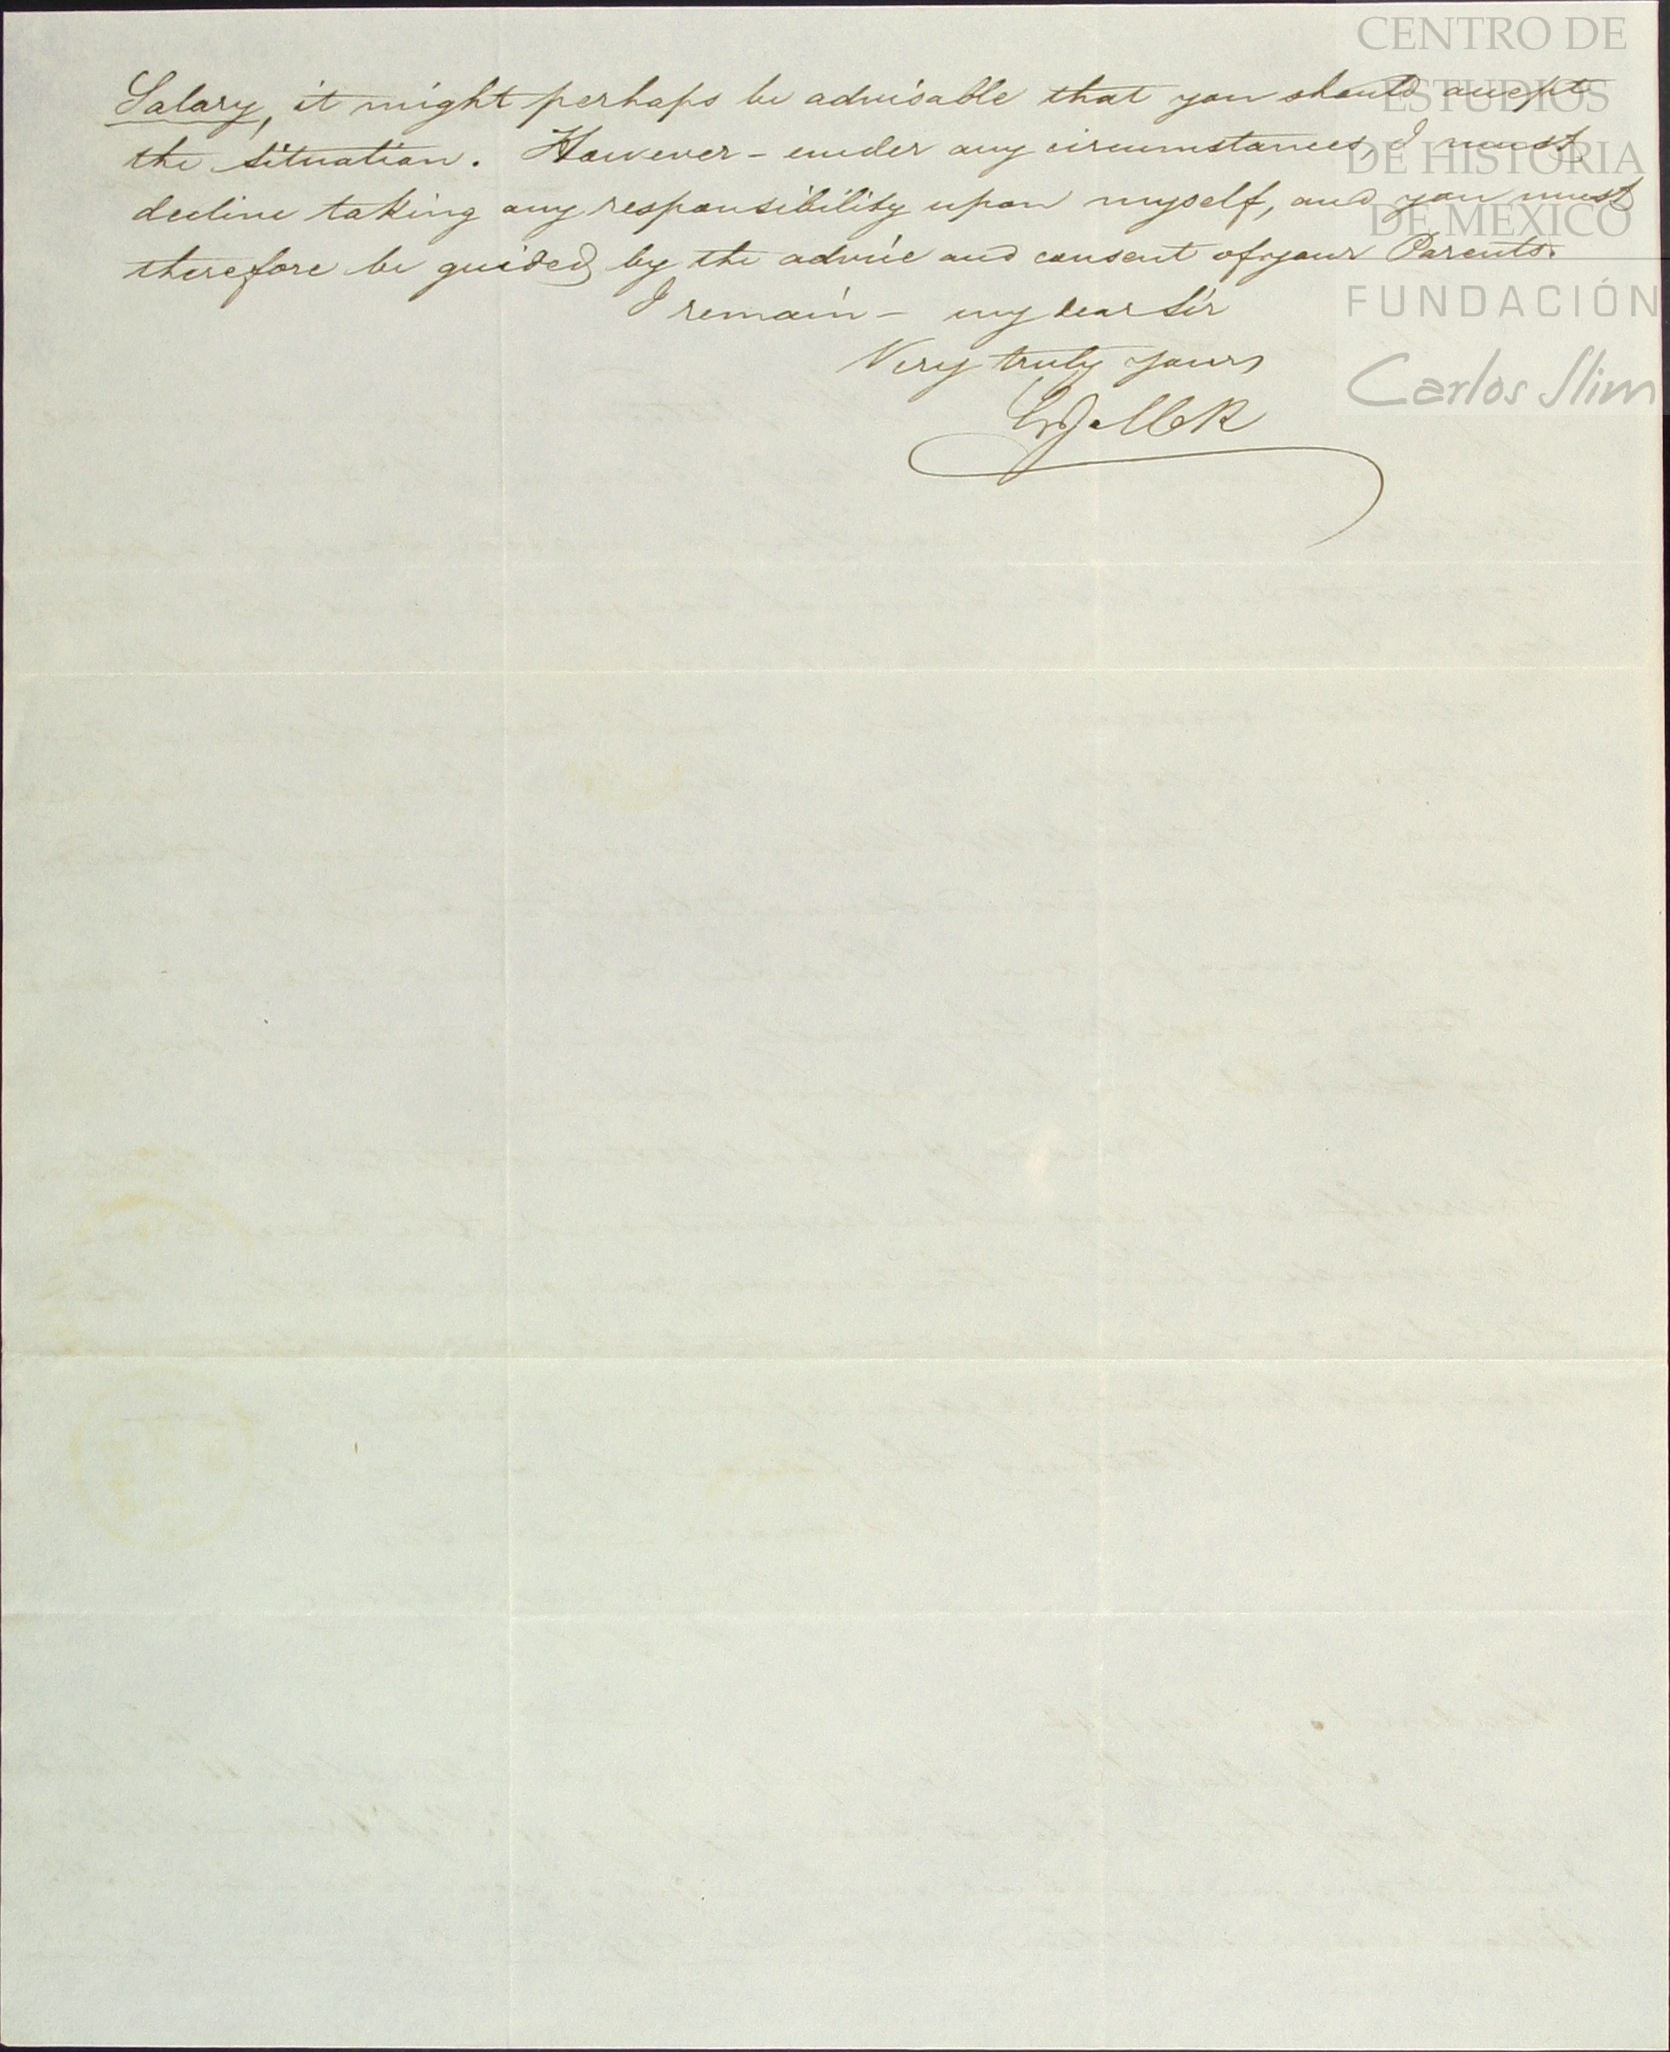 Salary, it might perhaps be advisable that you should accept
the situation. However - under any circumstances, I must
decline taking any responsibility upon myself, and you must
therefore be guided by the advice and consent of your Parents.
I remain - my dear Sir
Very truly yours
CENTRO DE
ESTUDIOS
DE HISTORIA
DE MEXICO
FUNDACIÓN
Carlos Slim